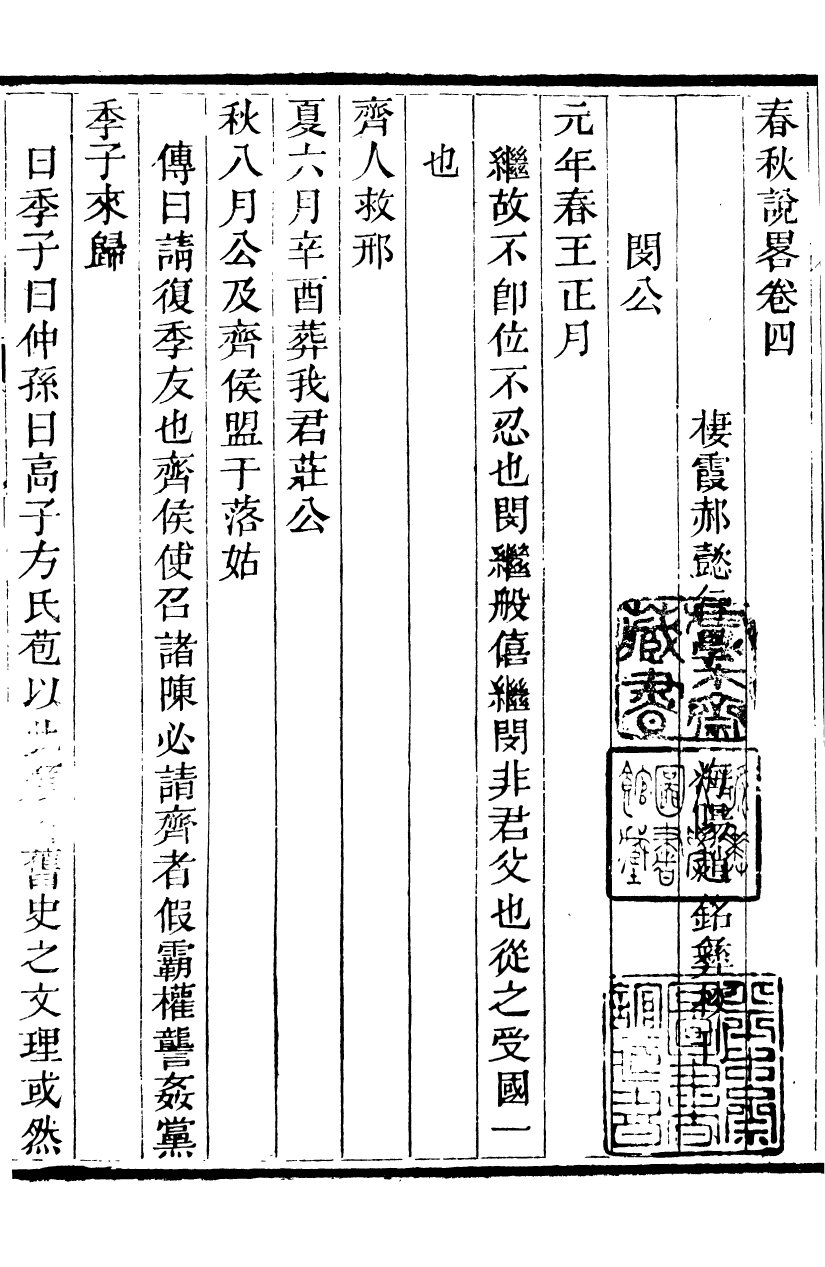 春秋說畧卷四
棲霞郝懿行學 海陽趙銘彝校刊
閔公
元年春王正月
繼故不卽位不忍也閔繼般僖繼閔非君父也從之受國一
也
齊人救邢
夏六月辛酉葬我君莊公
秋八月公及齊侯盟于落姑
傳曰請復季友也齊侯使召諸陳必請齊者假霸權讋姦黨
季子來歸
曰季子曰仲孫曰高子方氏苞以此舊史之文理或然
藏書
圖書館藏